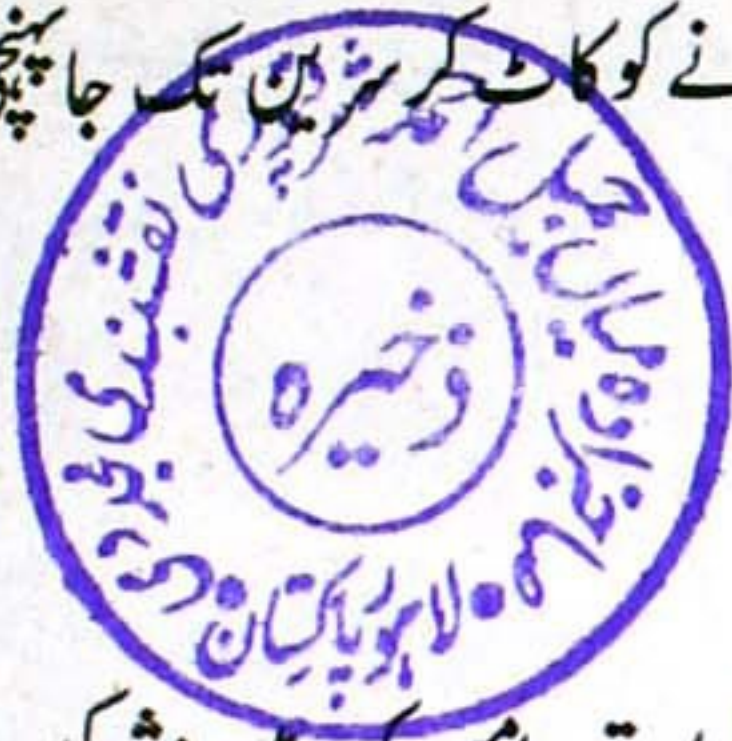 نے کو کاٹ کر سرین تک جا پہنچی
صاحبزادہ میاں جمیل احمد شرقپوری نقشبندی مجددی
ذخیرہ
لاہور پاکستان